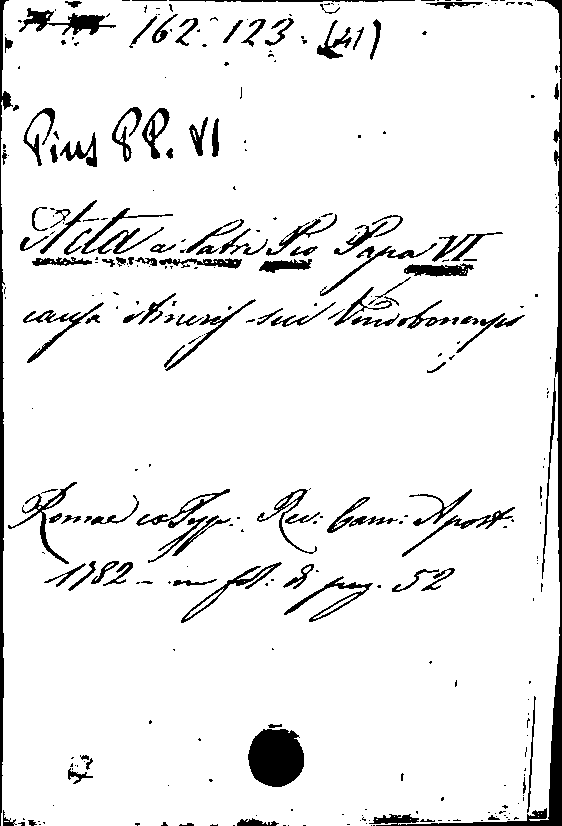 162. 123. (41)
Pius PP. VI
Acta a Patri Pio Papa VI
causa Itineris sui Vindobonensis
Romae ex Typ: Rev: Cam: Apost:
1782 - in fol: di pag. 52